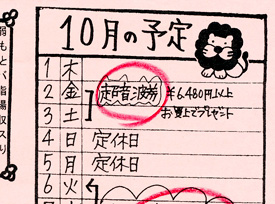 10月の予定
1 木
2 金 超音波券 ¥6,480円以上
3 土 お買上でプレゼント
4 日 定休日
5 月 定休日
6 火